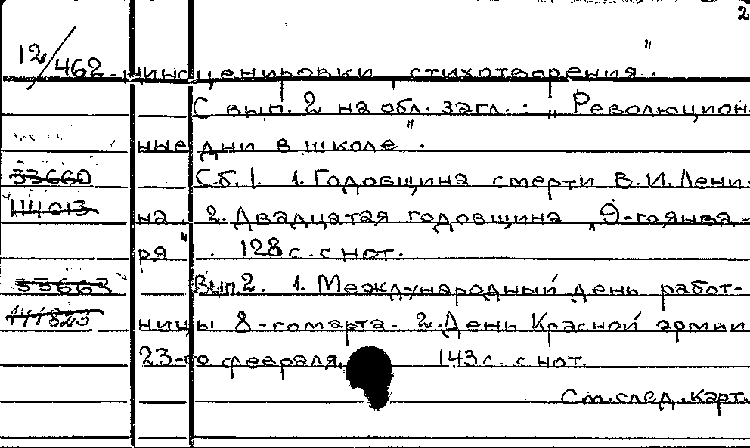 2
12/462 инсценировки, стихотворения".
С вып. 2 на обл. загл.: „Революцион-
ные дни в школе".
33660 Сб. 1. 1. Годовщина смерти В.И. Лени-
на. 2. Двадцатая годовщина „9-го янва-
ря". 128 с. с нот.
Вып. 2. 1. Международный день работ-
ницы 8-го марта. 2. День Красной армии
23-го февраля. 143 с. с нот.
См. след. карт.